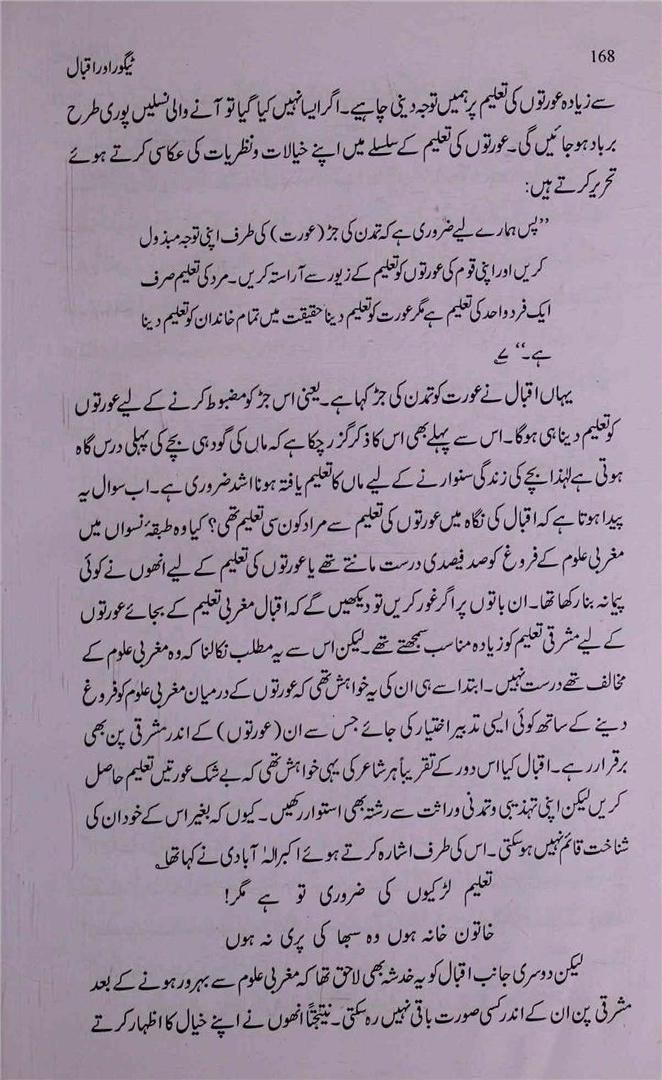 168
ٹیگور اور اقبال
سے زیادہ عورتوں کی تعلیم پر ہمیں توجہ دینی چاہیے۔ اگر ایسا نہیں کیا گیا تو آنے والی نسلیں پوری طرح
برباد ہو جائیں گی۔ عورتوں کی تعلیم کے سلسلے میں اپنے خیالات و نظریات کی عکاسی کرتے ہوئے
تحریر کرتے ہیں:
”پس ہمارے لیے ضروری ہے کہ تمدن کی جڑ (عورت) کی طرف اپنی توجہ مبذول
کریں اور اپنی قوم کی عورتوں کو تعلیم کے زیور سے آراستہ کریں۔ مرد کی تعلیم صرف
ایک فرد واحد کی تعلیم ہے مگر عورت کو تعلیم دینا حقیقت میں تمام خاندان کو تعلیم دینا
ہے۔“ ۷
یہاں اقبال نے عورت کو تمدن کی جڑ کہا ہے۔ یعنی اس جڑ کو مضبوط کرنے کے لیے عورتوں
کو تعلیم دینا ہی ہوگا۔ اس سے پہلے بھی اس کا ذکر گزر چکا ہے کہ ماں کی گود ہی بچے کی پہلی درس گاہ
ہوتی ہے لہٰذا بچے کی زندگی سنوارنے کے لیے ماں کا تعلیم یافتہ ہونا اشد ضروری ہے۔ اب سوال یہ
پیدا ہوتا ہے کہ اقبال کی نگاہ میں عورتوں کی تعلیم سے مراد کون سی تعلیم تھی؟ کیا وہ طبقۂ نسواں میں
مغربی علوم کے فروغ کو صد فیصدی درست مانتے تھے یا عورتوں کی تعلیم کے لیے انھوں نے کوئی
پیمانہ بنا رکھا تھا۔ ان باتوں پر اگر غور کریں تو دیکھیں گے کہ اقبال مغربی تعلیم کے بجائے عورتوں
کے لیے مشرقی تعلیم کو زیادہ مناسب سمجھتے تھے۔ لیکن اس سے یہ مطلب نکالنا کہ وہ مغربی علوم کے
مخالف تھے درست نہیں۔ ابتدا سے ہی ان کی یہ خواہش تھی کہ عورتوں کے درمیان مغربی علوم کو فروغ
دینے کے ساتھ کوئی ایسی تدبیر اختیار کی جائے جس سے ان (عورتوں) کے اندر مشرقی پن بھی
برقرار رہے۔ اقبال کیا اس دور کے تقریباً ہر شاعر کی یہی خواہش تھی کہ بے شک عورتیں تعلیم حاصل
کریں لیکن اپنی تہذیبی و تمدنی وراثت سے رشتہ بھی استوار رکھیں۔ کیوں کہ بغیر اس کے خود ان کی
شناخت قائم نہیں ہو سکتی۔ اس کی طرف اشارہ کرتے ہوئے اکبر الہٰ آبادی نے کہا تھا؂
تعلیم لڑکیوں کی ضروری تو ہے مگر!
خاتون خانہ ہوں وہ سبھا کی پری نہ ہوں
لیکن دوسری جانب اقبال کو یہ خدشہ بھی لاحق تھا کہ مغربی علوم سے بہرور ہونے کے بعد
مشرقی پن ان کے اندر کسی صورت باقی نہیں رہ سکتی۔ نتیجتاً انھوں نے اپنے خیال کا اظہار کرتے